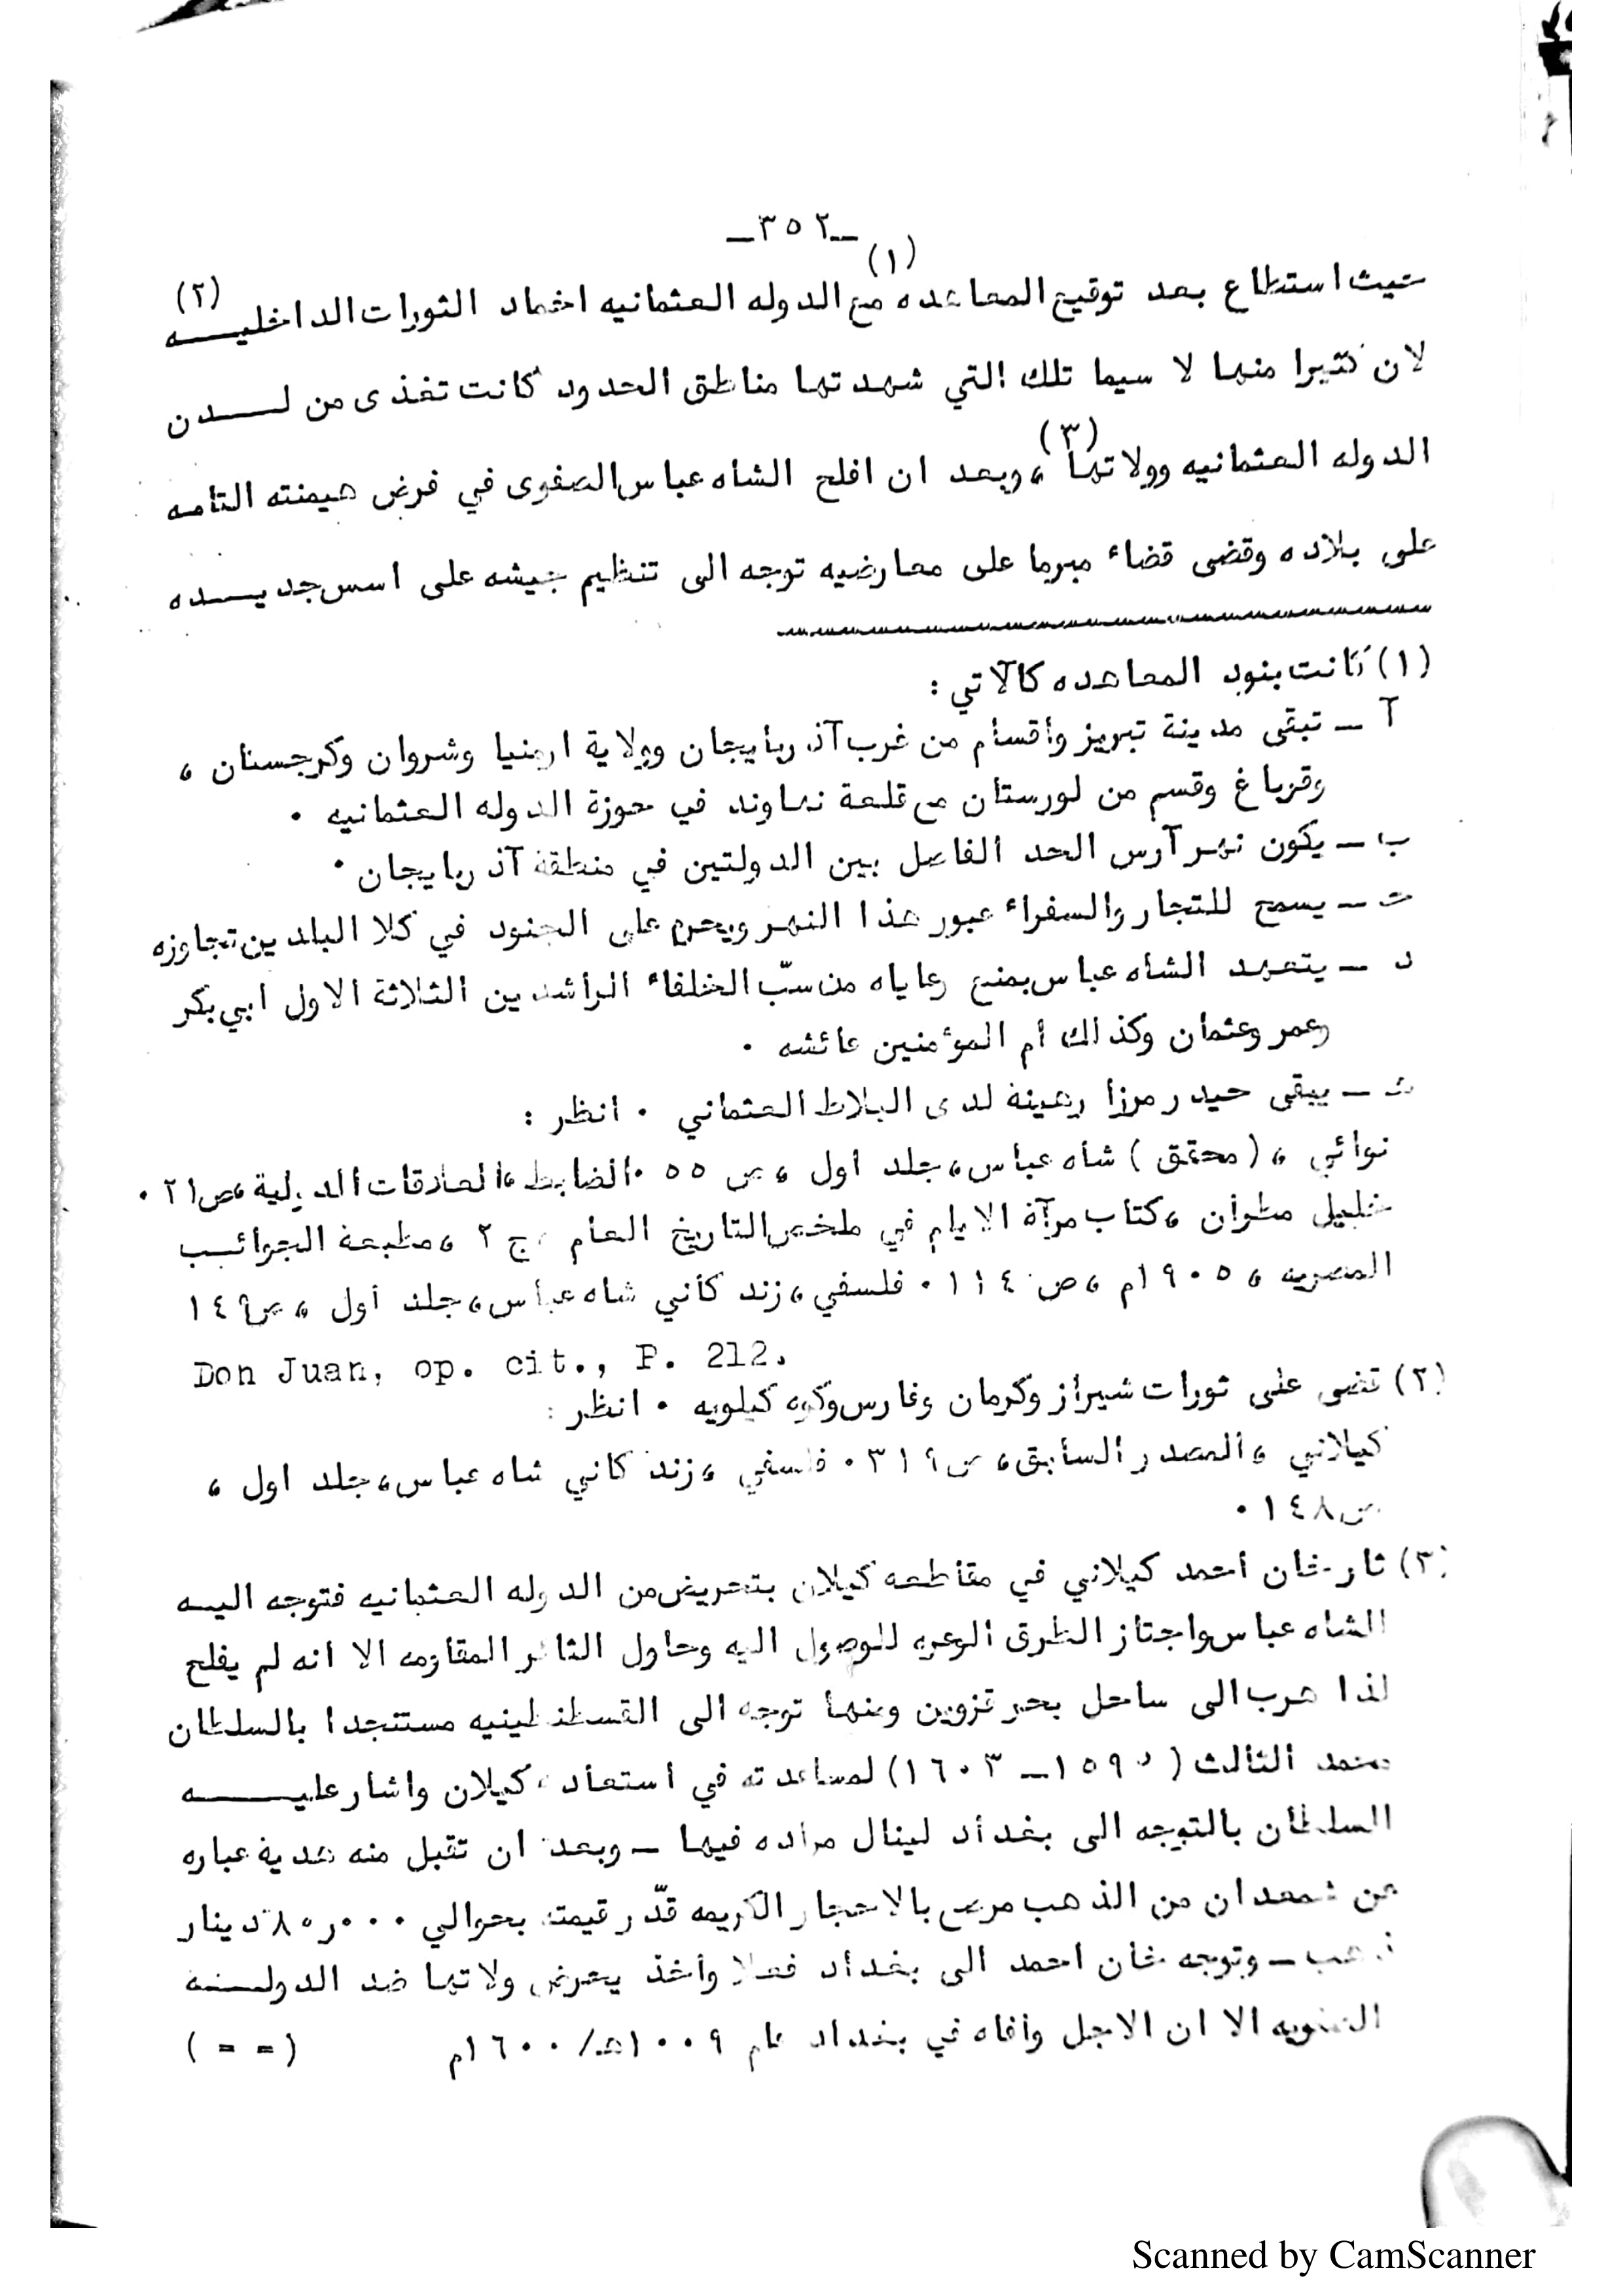 ـ٣٥٢ـ
حيث استطاع بعد توقيع المعاهده (١) مع الدوله العثمانيه اخماد الثورات الداخليـــه (٢)
لان كثيرا منها لا سيما تلك التي شهدتها مناطق الحدود كانت تغذى من لــــدن
الدوله العثمانيه وولاتها (٣) ، وبعد ان افلح الشاه عباس الصفوى في فرض هيمنته التامه
على بلاده وقضى قضاء مبرما على معارضيه توجه الى تنظيم جيشه على اسس جديـــده
(١) كانت بنود المعاهده كالآتي :
آ ـ تبقى مدينة تبريز وأقسام من غرب آذربايجان وولاية ارمنيا وشروان وكرجستان ،
وقرباغ وقسم من لورستان مع قلعة نهاوند في حوزة الدوله العثمانيه .
ب ـ يكون نهر آرس الحد الفاصل بين الدولتين في منطقة آذربايجان .
ت ـ يسمح للتجار والسفراء عبور هذا النهر ويحرم على الجنود في كلا البلدين تجاوزه
د ـ يتعهد الشاه عباس بمنع رعاياه من سبّ الخلفاء الراشدين الثلاثة الاول ابي بكر
وعمر وعثمان وكذالك أم المؤمنين عائشه .
ـ يبقى حيدر مرزا رهينة لدى البلاط العثماني . انظر :
نوائي ، (محقق) شاه عباس ، جلد اول ، ص ٥٥ . الضابط ، العلاقات الدولية ، ص٢١ .
خليل مطران ، كتاب مرآة الايام في ملخص التاريخ العام ، ج ٢ ، مطبعة الجوائب
المصريه ، ١٩٠٥م ، ص ١١٤ . فلسفي ، زندكاني شاه عباس ، جلد أول ، ص١٤٩
Don Juan, op. cit., P. 212.
(٢) قضى على ثورات شيراز وكرمان وفارس وكوه كيلويه . انظر :
كيلاني ، المصدر السابق ، ص٣١٩ . فلسفي ، زندكاني شاه عباس ، جلد اول ،
ص١٤٨ .
(٣) ثار خان احمد كيلاني في مقاطعه كيلان بتحريض من الدوله العثمانيه فتوجه اليـه
الشاه عباس واجتاز الطرق الوعره للوصول اليه وحاول الثائر المقاومه الا انه لم يفلح
لذا هرب الى ساحل بحر قزوين ومنها توجه الى القسطنطينيه مستنجدا بالسلطان
محمد الثالث (١٥٩٥ ـ ١٦٠٣) لمساعدته في استعاده كيلان واشار عليـــــه
السلطان بالتوجه الى بغداد لينال مراده فيها ـ وبعد ان تقبل منه هدية عباره
عن شمعدان من الذهب مرصع بالاحجار الكريمه قدّر قيمته بحوالي ٨٥٠ر٠٠٠ دينار
ذهب ـ وتوجه خان احمد الى بغداد فعلا وأخذ يحرض ولاتها ضد الدولـــه
الصفويه الا ان الاجل وافاه في بغداد عام ١٠٠٩هـ/١٦٠٠م (= =)
Scanned by CamScanner